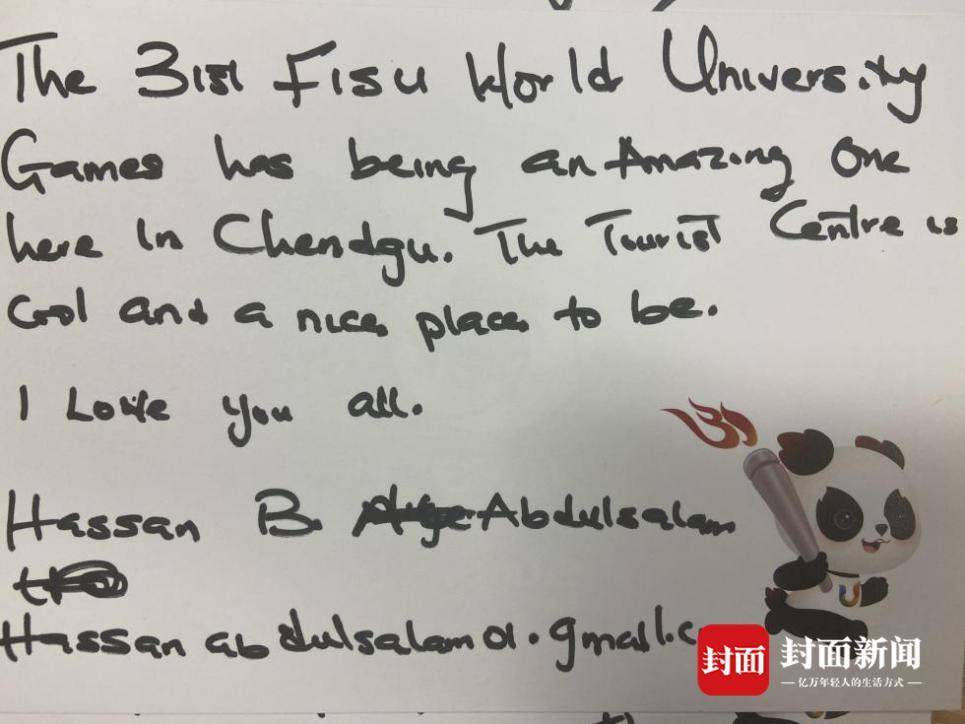 The 31st Fisu World University
Games has being an Amazing One
here in Chendgu. The Tourist Centre is
and a nice place to be.
I Love you all.
Hassan B. Abdulsalam
Hassan abdulsalam01.gmail.c
封面 封面新闻
亿万年轻人的生活方式